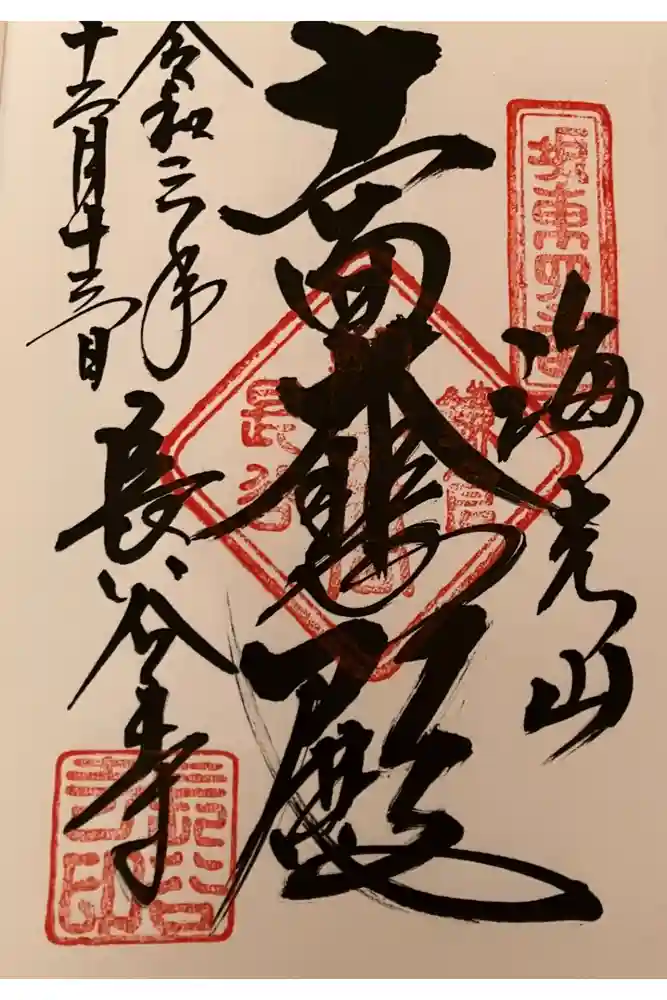 坂東四番
海光山
十一面大悲殿
鎌倉
長谷
令和三年
十二月十二日
長谷寺
長谷寺印